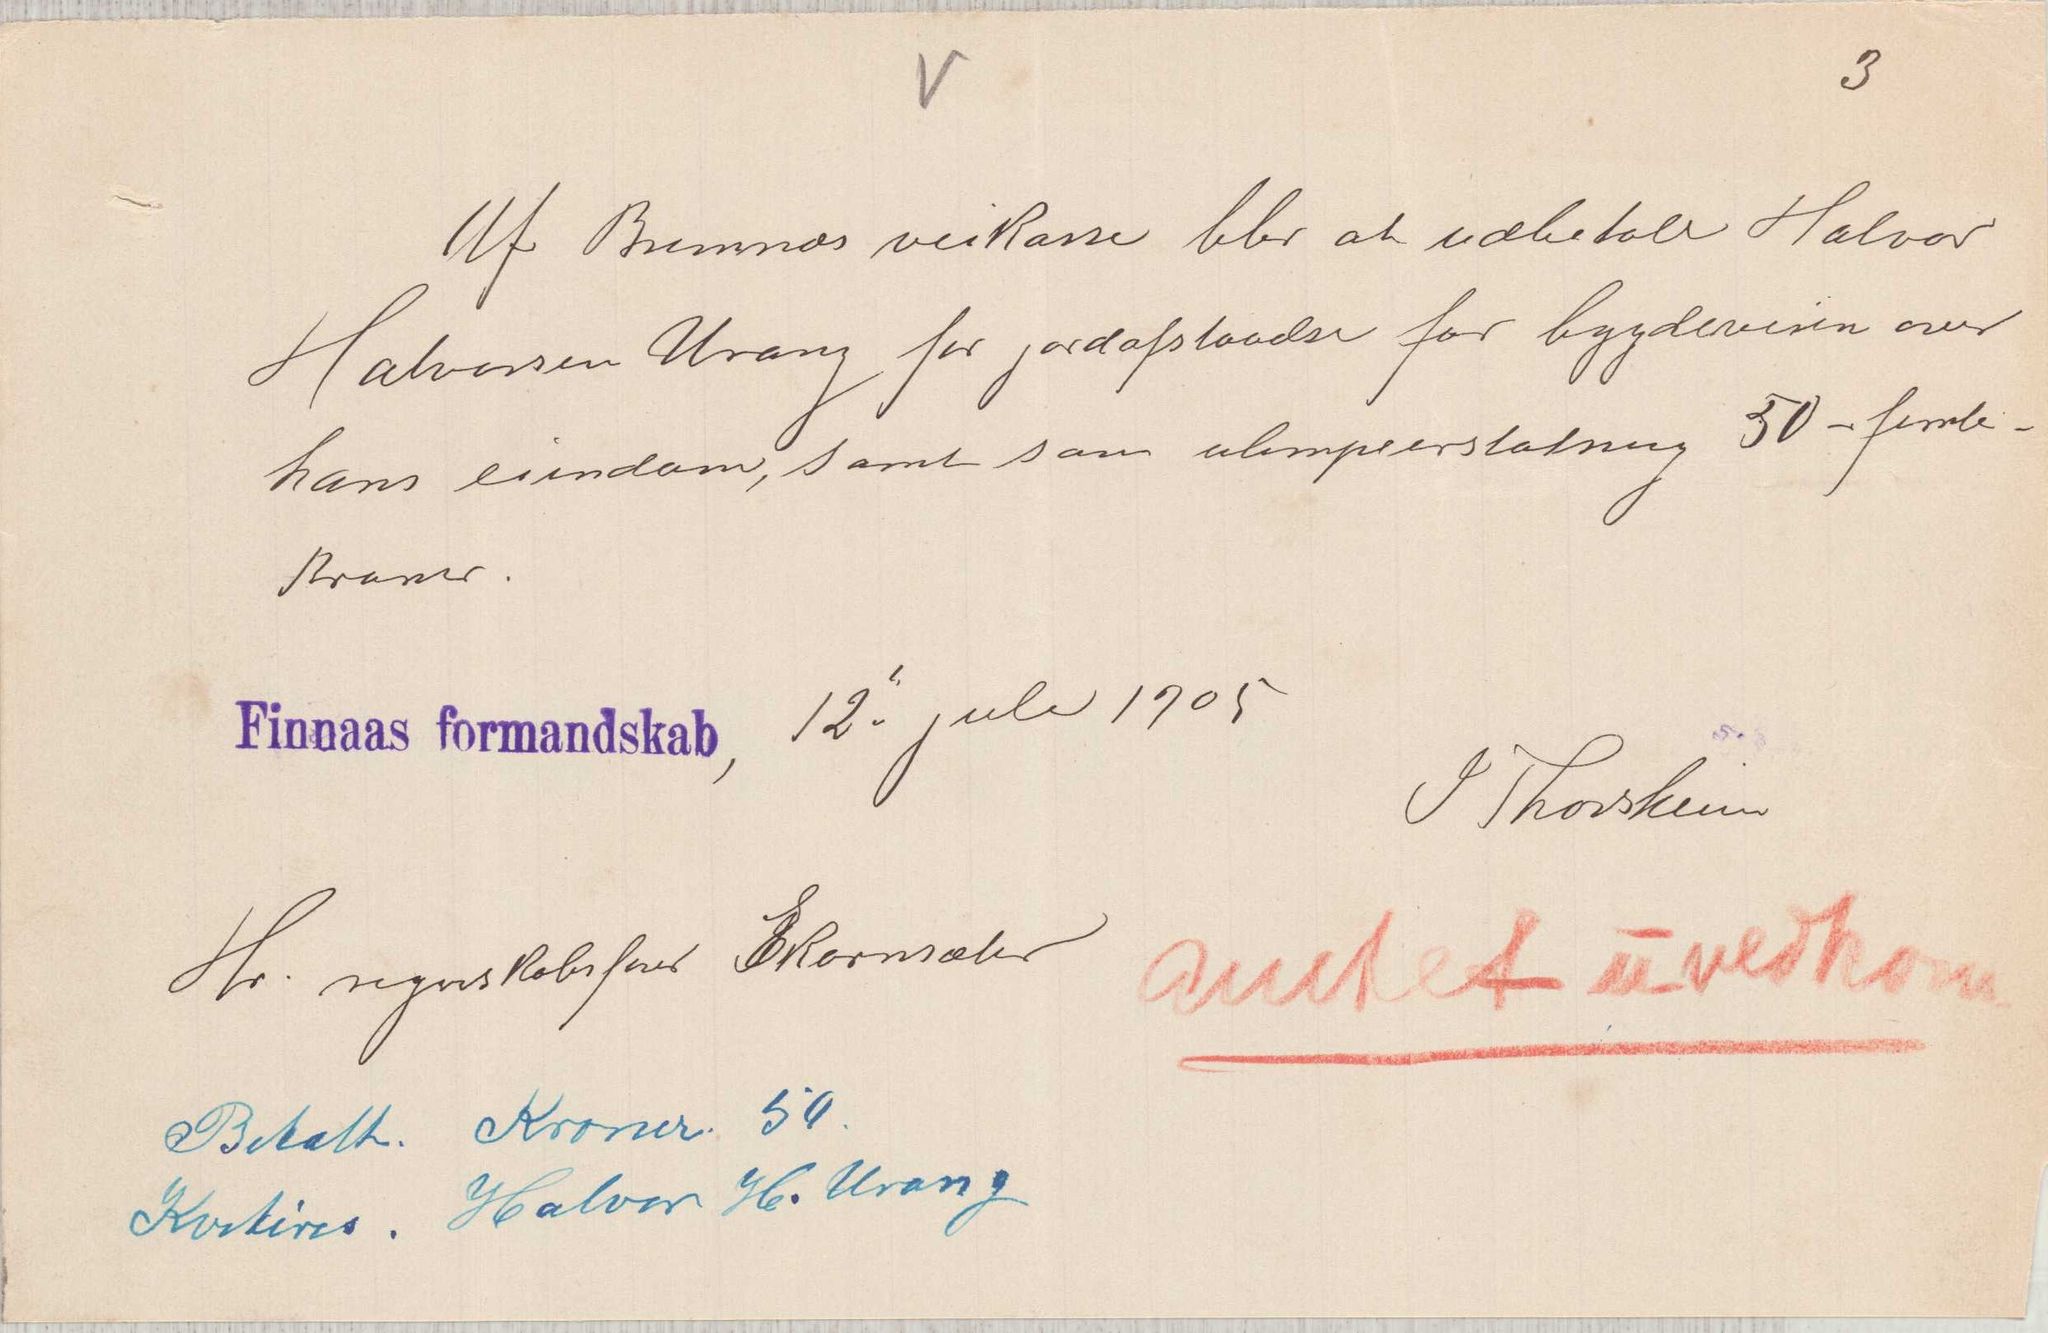 V
3
Af Bremnæs veikasse blir at udbetale Halvor
Halvorsen Urang for jordafstaaelse for bygdeveien over
hans eiendom, samt som ulempeerstatning 50 - femti -
kroner.
Finnaas formandskab, 12' juli 1905
J Thorsheim
Hr. regnskabsfører Ekornsæter
amtet uvedkom
Betalt. Kroner. 50.
Kviteres. Halvor H. Urang